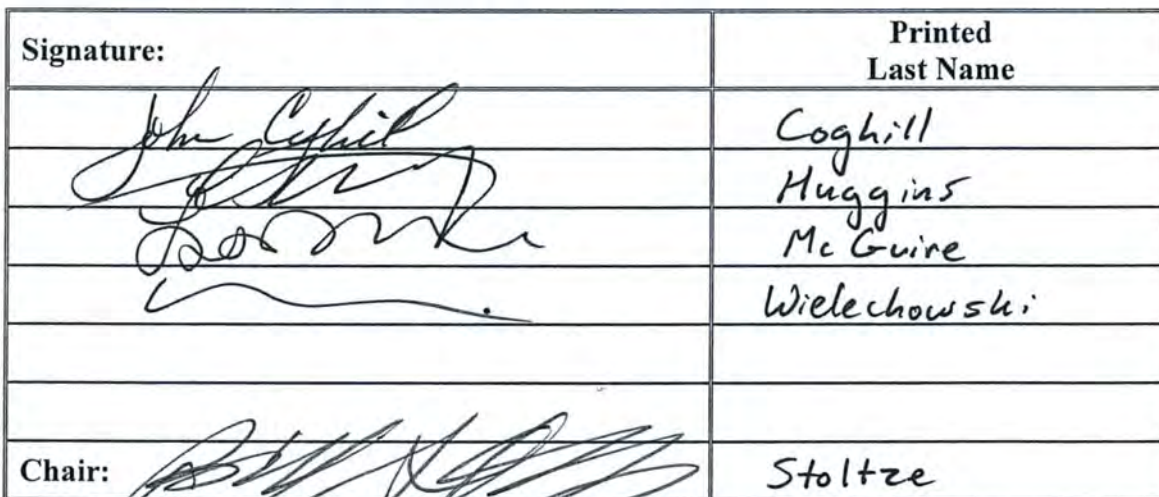 Signature: Printed
Last Name
John Coghill Coghill
Huggins
McGuire
Wielechowski
Chair: Stoltze